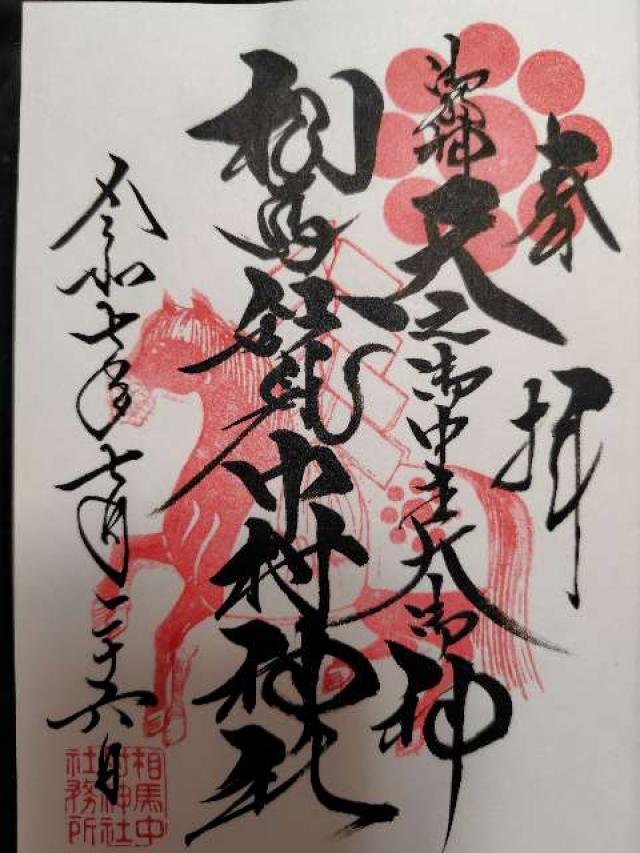 奉拝
御祭神 天之御中主大御神
相馬 中村神社
令和七年七月二十六日
相馬中
村神社
社務所